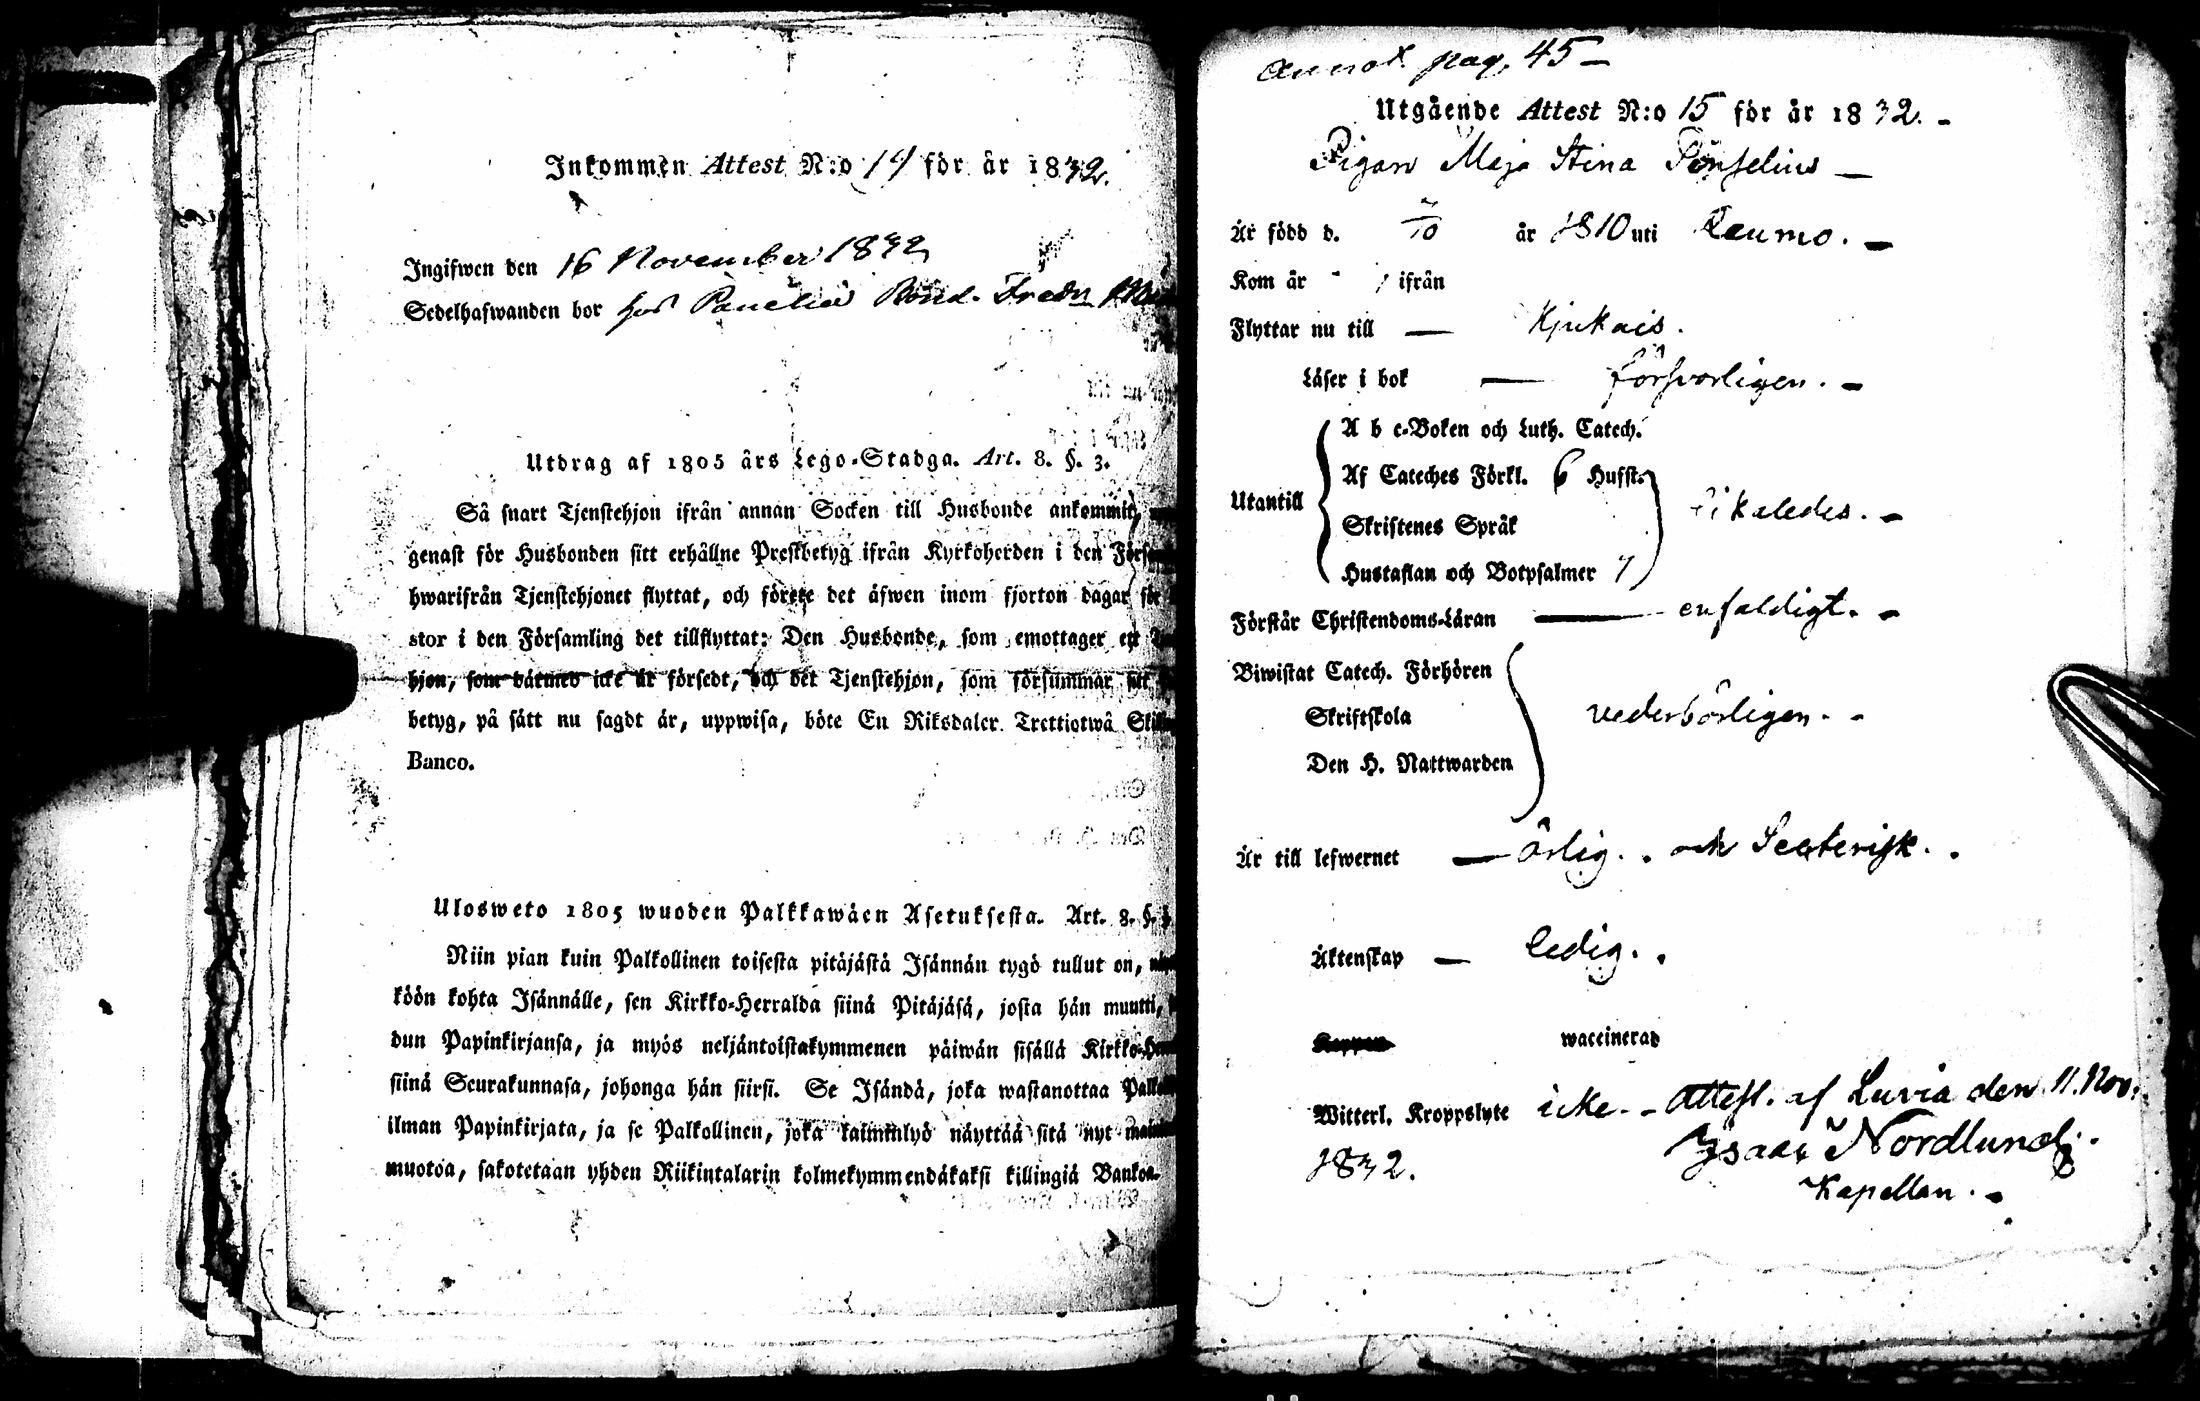 Inkommen Attest N:o 14 för år 1832.
Ingifwen den 16 November 1832
Sedelhafwanden bor hos Panelia Bond. Fredr
Utdrag af 1805 års Lego-Stadga. Art. 8. §. 3.
Så snart Tjenstehjon ifrån annan Socken till Husbonde ankommit,
genast för Husbonden sitt erhållne Prestbetyg ifrån Kyrkoherden i den
hwarifrån Tjenstehjonet flyttat, och förete det äfwen inom fjorton dagar för
stor i den Församling det tillflyttat: Den Husbonde, som emottager ett
hjon, som därmed icke är försedt, och det Tjenstehjon, som försummar sitt
betyg, på sätt nu sagdt är, uppwisa, böte En Riksdaler Trettiotwå
Banco.
Ulosweto 1805 wuoden Palkkawäen Asetuksesta. Art. 8. §.
Niin pian kuin Palkollinen toisesta pitäjästä Isännän tygö tullut on,
köön kohta Isännälle, sen Kirkko-Herralda siinä Pitäjäsä, josta hän muutti,
dun Papinkirjansa, ja myös neljäntoistakymmenen päiwän sisällä
siinä Seurakunnasa, johonga hän siirsi. Se Isändä, joka wastanottaa
ilman Papinkirjata, ja se Palkollinen, joka laiminlyö näyttää sitä nyt
muotoa, sakotetaan yhden Riikintalarin kolmekymmendäkaksi killingiä Bankoa.
Annot. pag. 45 -
Utgående Attest N:o 15 för år 1832. -
Pigan Maja Stina -
Är född d. /10 år 1810 uti Raumo. -
Kom år ifrån
Flyttar nu till - Kjukais.
Läser i bok - försvarligen. -
Utantill
A b c-Boken och Luth. Catech.
Af Cateches Förkl. 6 Hufst.
Skriftenes Språk
Hustaflan och Botpsalmer 7
likaledes. -
Förstår Christendoms-Läran - enfaldigt. -
Biwistat Catech. Förhören
Skriftskola
Den H. Nattwarden
vederbörligen. -
Är till lefwernet - ärlig. och
Äktenskap - ledig.
Koppor waccinerad
Witterl. Kroppslyte icke. - Attest. af Luvia den 11. Nov.
1832. Isaac Nordlund.
Kapellan. -